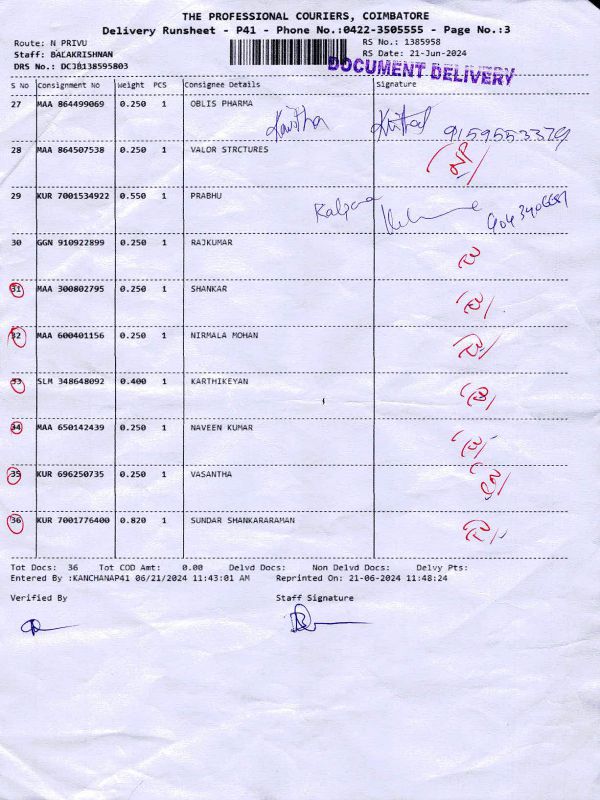 THE PROFESSIONAL COURIERS, COIMBATORE
Delivery Runsheet - P41 - Phone No.:0422-3505555 - Page No.:3
Route: N PRIVU RS No.: 1385958
Staff: BALAKRISHNAN RS Date: 21-Jun-2024
DRS No.: DCJB138595803
DOCUMENT DELIVERY
S No Consignment No Weight PCS Consignee Details Signature
27 MAA 864499069 0.250 1 OBLIS PHARMA
Kavitha 9159553379
28 MAA 864507538 0.250 1 VALOR STRCTURES
29 KUR 7001534922 0.550 1 PRABHU
Kalpana
30 GGN 910922899 0.250 1 RAJKUMAR
31 MAA 300802795 0.250 1 SHANKAR
32 MAA 600401156 0.250 1 NIRMALA MOHAN
33 SLM 348648092 0.400 1 KARTHIKEYAN
34 MAA 650142439 0.250 1 NAVEEN KUMAR
35 KUR 696250735 0.250 1 VASANTHA
36 KUR 7001776400 0.820 1 SUNDAR SHANKARARAMAN
Tot Docs: 36 Tot COD Amt: 0.00 Delvd Docs: Non Delvd Docs: Delvy Pts:
Entered By :KANCHANAP41 06/21/2024 11:43:01 AM Reprinted On: 21-06-2024 11:48:24
Verified By Staff Signature